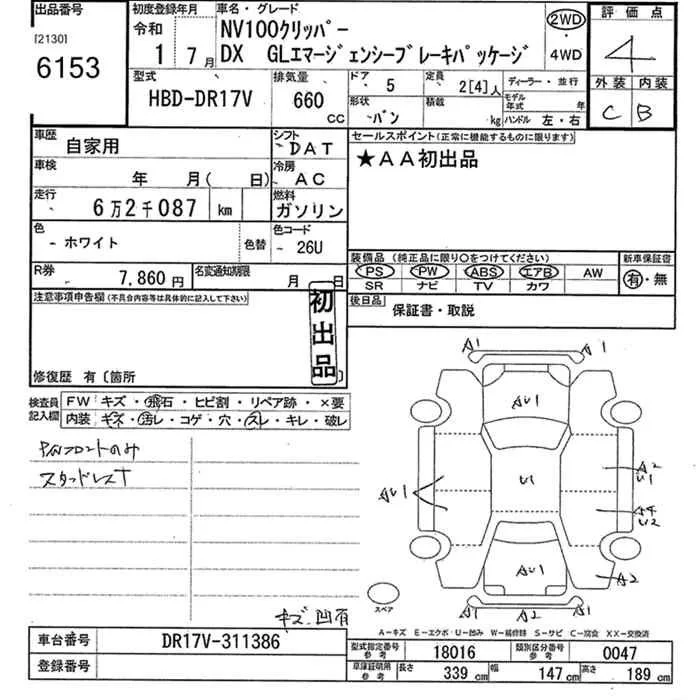 出品番号 初度登録年月 車名・グレード 評価点
[2130] 令和 NV100クリッパー 2WD
6153 1 7月 DX GLエマージェンシーブレーキパッケージ 4WD 4
型式 排気量 ドア 5 定員 2[4]人 ディーラー・並行 外装 内装
HBD-DR17V 660 CC 形状 バン 積載 kg モデル年式 年 ハンドル 左・右 C B
車歴 自家用 シフト DAT セールスポイント(正常に機能するものに限ります)
車検 年 月( 日) 冷房 AC ★AA初出品
走行 6万2千087 km 燃料 ガソリン
色 - ホワイト 色替 色コード - 26U
装備品 (純正品に限り○をつけてください) 新車保証書
R券 7,860円 名変通知期限 月 日 PS PW ABS エアB AW 有・無
SR ナビ TV カワ
注意事項申告欄(不具合内容等は具体的に記入して下さい) 初出品 後日品 保証書・取説
修復歴 有〔箇所
検査員記入欄 FW キズ・飛石・ヒビ割・リペア跡・×要
内装 キズ・汚レ・コゲ・穴・スレ・キレ・破レ
P/Wフロントのみ
スタッドレスT
キズ、凹有
A1 A1
AU1
AU1 U1 A2 U1
A4 U2
AU1 A2
A1 A2 A1
スペア
A-キズ E-エクボ U-凹み W-補修跡 S-サビ C-腐食 XX-交換済
車台番号 DR17V-311386 型式指定番号 参考 18016 類別区分番号 参考 0047
登録番号 車庫証明用 参考 長さ 339 cm 幅 147 cm 高さ 189 cm